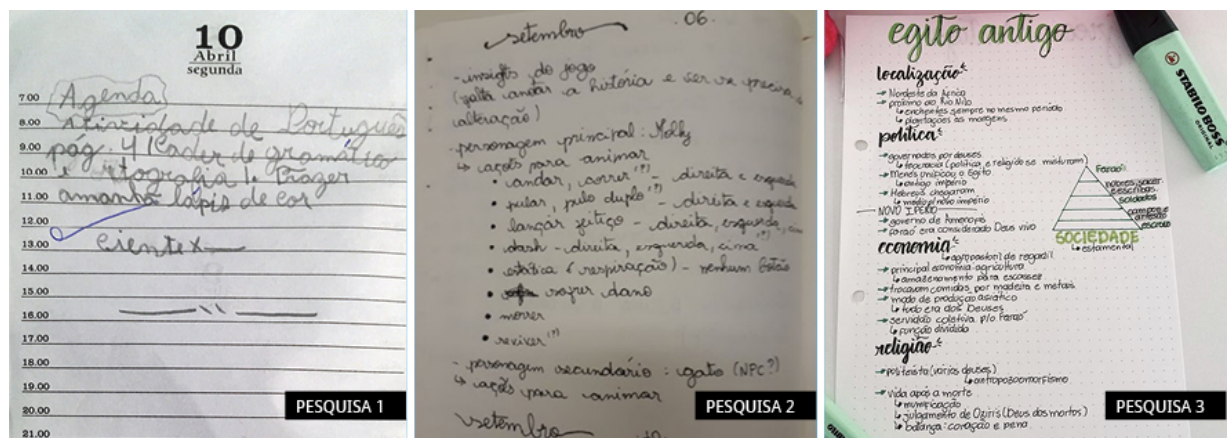 10
Abril
segunda
7.00
Agenda
8.00
Atividade de Português
9.00
pág. 41 Cader de gramático
10.00
e rtografia 1. Trazer
11.00
amanhã lápis de cor
12.00
13.00
Ciente x
14.00
15.00
16.00
17.00
18.00
19.00
20.00
21.00
PESQUISA 1
setembro
06.
- insights do jogo
(falta andar a história e ser va precisa
alteração)
- personagem principal: Molly
↳ ações para animar
• andar, correr (?) - direita e esquerda
• pular, pulo duplo (?) - direita e esquerda
• lançar feitiço - direita, esquerda, cima
• dash - direita, esquerda, cima (?)
• estática (respiração) - nenhum botão
• sofrer dano
• morrer
• reviver (?)
- personagem secundário: gato (NPC?)
↳ ações para animar
setembro
PESQUISA 2
egito antigo
localização
→ Nordeste da África
→ próximo ao Rio Nilo
↳ enchentes sempre no mesmo período
↳ plantações às margens
política
→ governados por deuses
↳ teocracia (política e religião se misturam)
→ Menés unificou o Egito
↳ antigo império
→ Hebreus chegaram
↳ médio/novo império
NOVO IPÉRIO
→ governo de Amenopis
→ faraó era considerado Deus vivo
Faraó
nobres, sacer.
e escribas
soldados
campos e
artesão
escravo
SOCIEDADE
↳ estamental
economia
↳ agropastoril de regadil
→ principal economia: agricultura
↳ armazenamento para escassez
→ trocavam comidas por madeira e metais
→ modo de produção asiático
↳ tudo era dos Deuses
→ servidão coletiva p/o Faraó
↳ função dividida
religião
→ politeísta (vários deuses)
↳ antropozoomorfismo
→ vida após a morte
↳ mumificação
↳ julgamento de Oziris (Deus dos mortos)
↳ balança: coração e pena
STABILO BOSS
ORIGINAL
PESQUISA 3